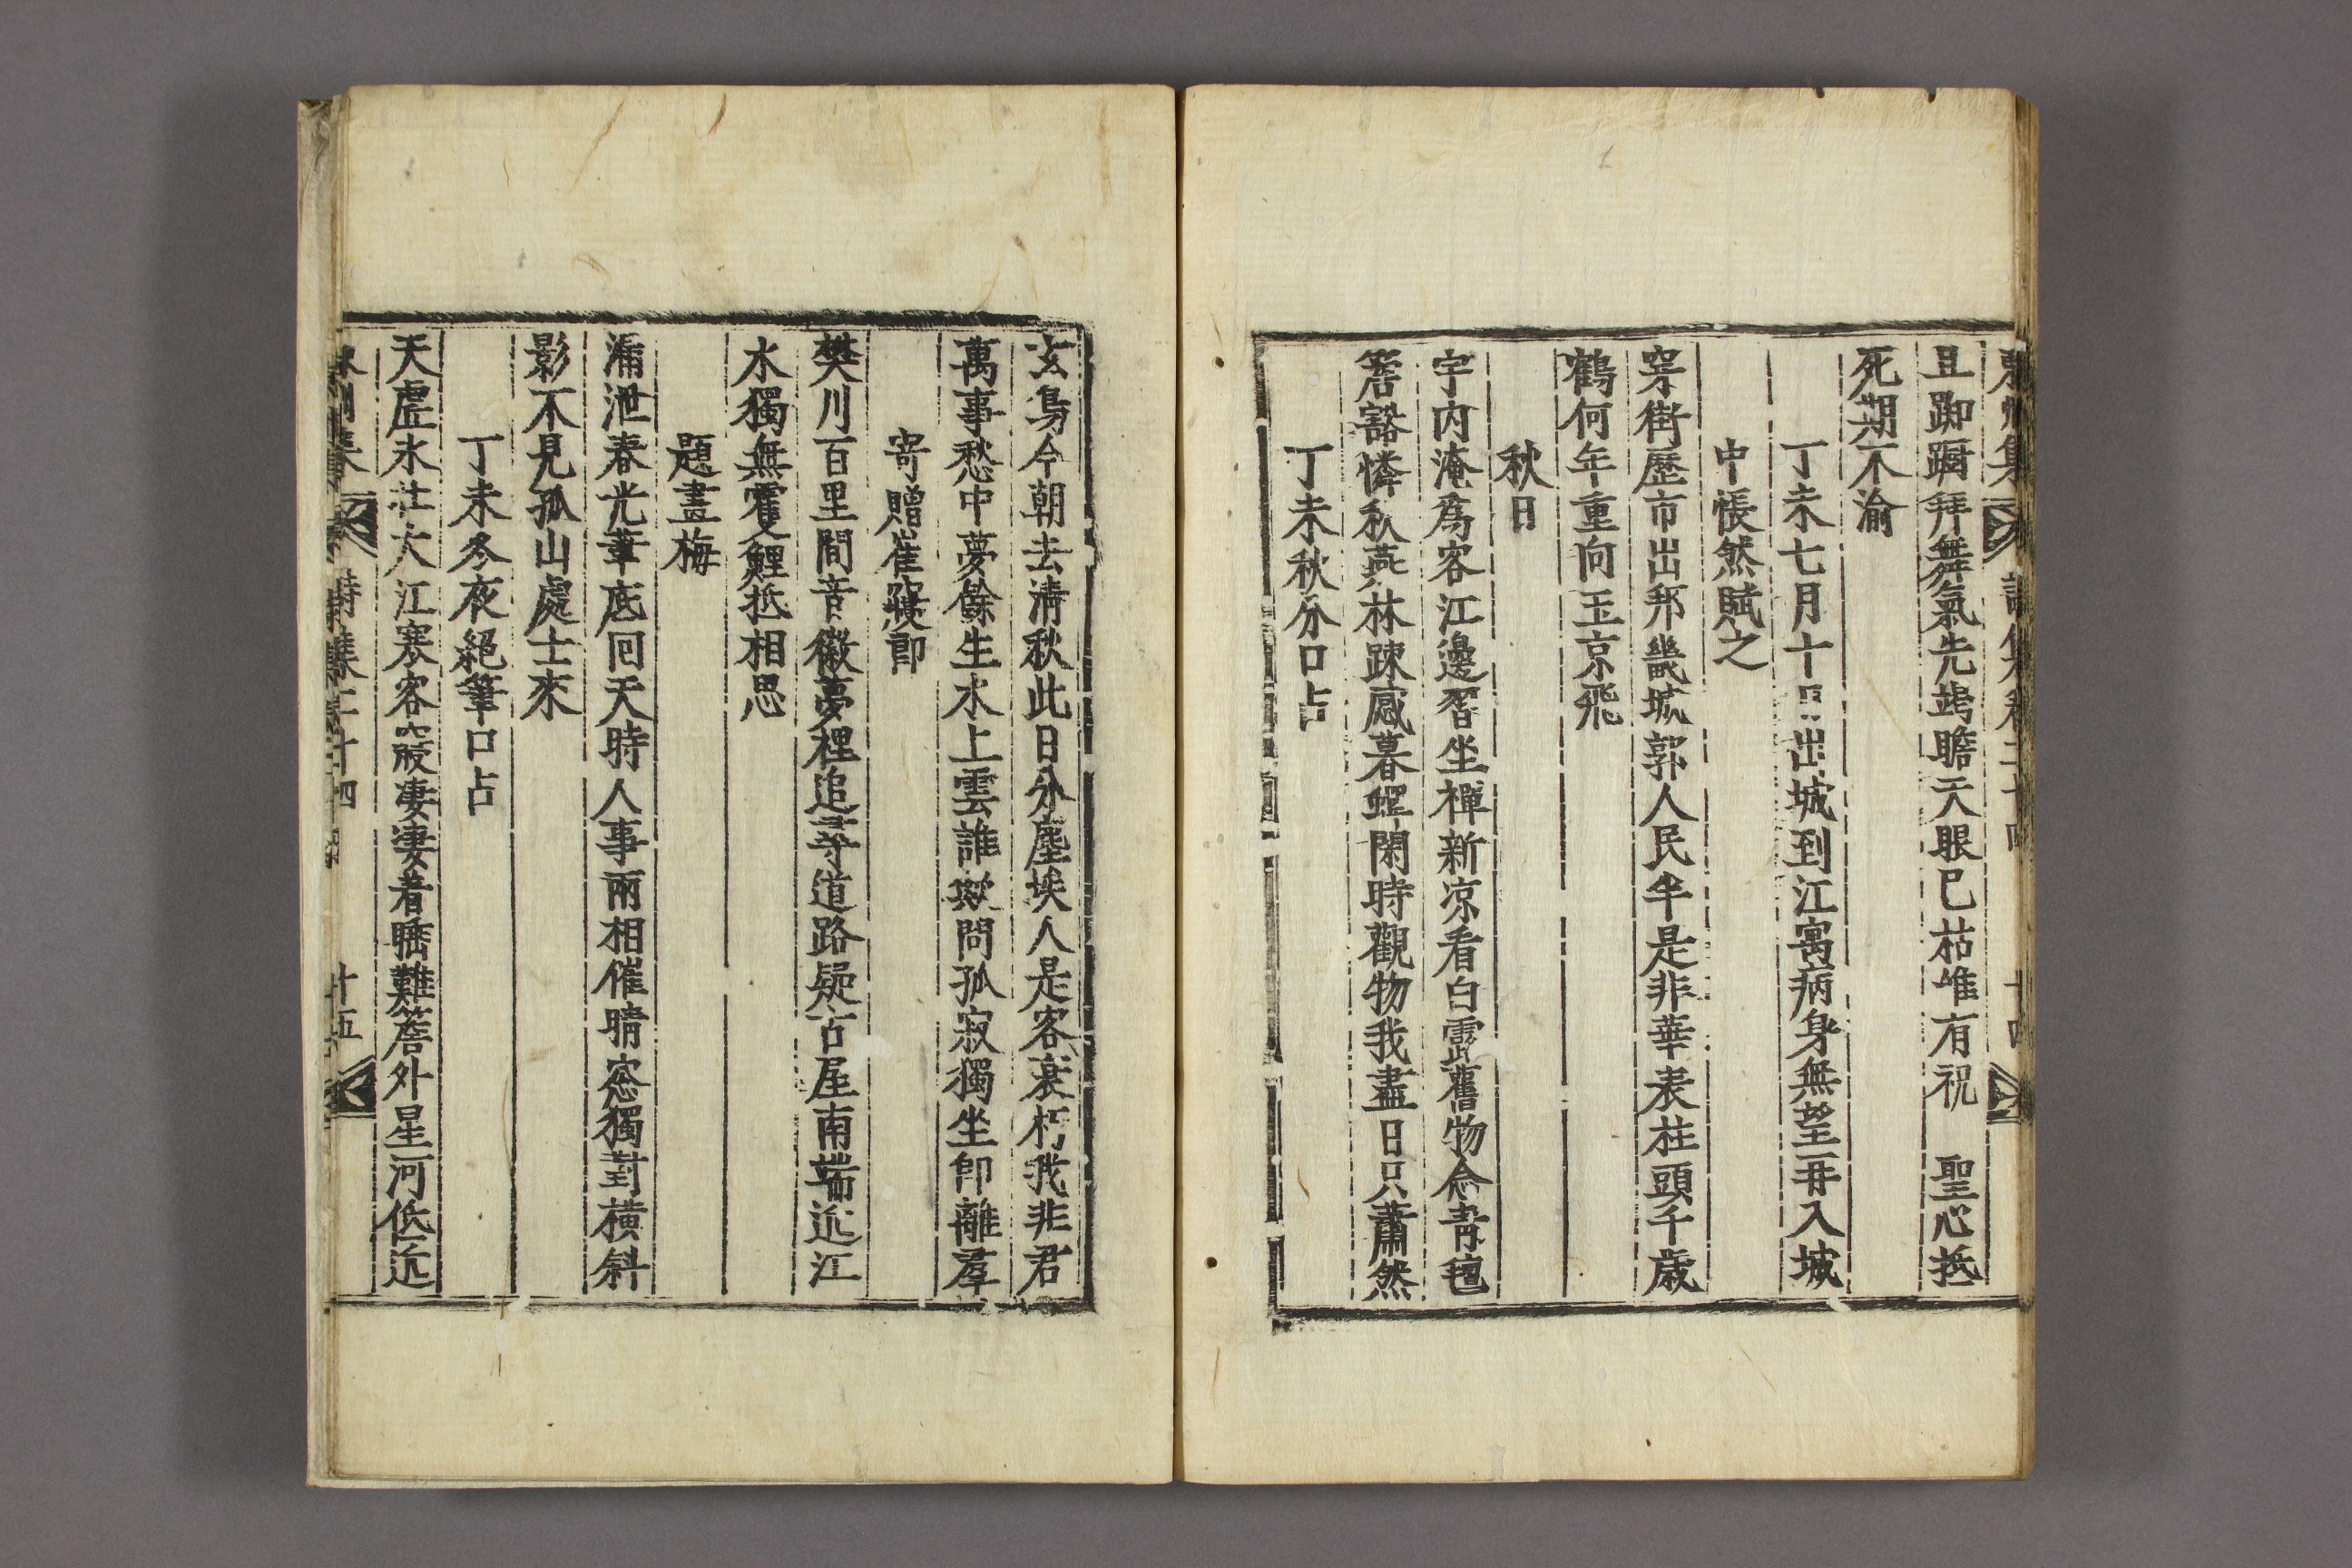 東州集 詩集卷二十四 十四
且踟躕拜舞氣先竭瞻天眼已枯唯有祝 聖心抵
死期不渝
丁未七月十日出城到江寓病身無望再入城
中悵然賦之
穿街歷市出邦畿城郭人民半是非華表柱頭千歲
鶴何年重向玉京飛
秋日
宇內淹爲客江邊習坐禪新凉看白露舊物念靑氊
簷豁憐秋燕林踈感暮蟬閑時觀物我盡日只蕭然
丁未秋分口占
玄鳥今朝去淸秋此日分塵埃人是客衰朽我非君
萬事愁中夢餘生水上雲誰歟問孤寂獨坐卽離羣
寄贈崔寢郞
樊川百里間音徽夢裡追尋道路疑古屋南端近江
水獨無雙鯉抵相思
題畫梅
漏泄春光筆底回天時人事兩相催晴窓獨對橫斜
影不見孤山處士來
丁未冬夜絕筆口占
天虛氷壯大江寒客寢凄凄着睡難簷外星河低近
東州集 詩集卷二十四 十五